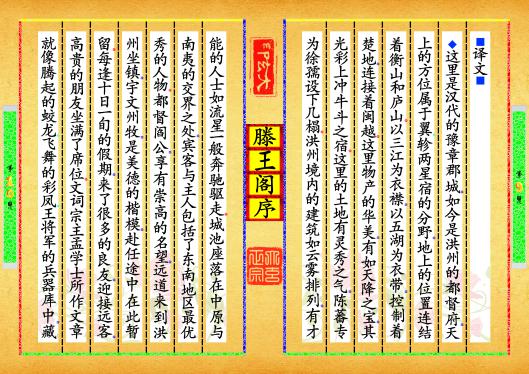 ■译文■
◆这里是汉代的豫章郡城如今是洪州的都督府天
上的方位属于翼轸两星宿的分野地上的位置连结
着衡山和庐山以三江为衣襟以五湖为衣带控制着
楚地连接着闽越这里物产的华美有如天降之宝其
光彩上冲牛斗之宿这里的土地有灵秀之气陈蕃专
为徐孺设下几榻洪州境内的建筑如云雾排列有才
滕王阁序
能的人士如流星一般奔驰驱走城池座落在中原与
南夷的交界之处宾客与主人包括了东南地区最优
秀的人物都督阎公享有崇高的名望远道来到洪
州坐镇宇文州牧是美德的楷模赴任途中在此暂
留每逢十日一旬的假期来了很多的良友迎接远客
高贵的朋友坐满了席位文词宗主孟学士所作文章
就像腾起的蛟龙飞舞的彩凤王将军的兵器库中藏